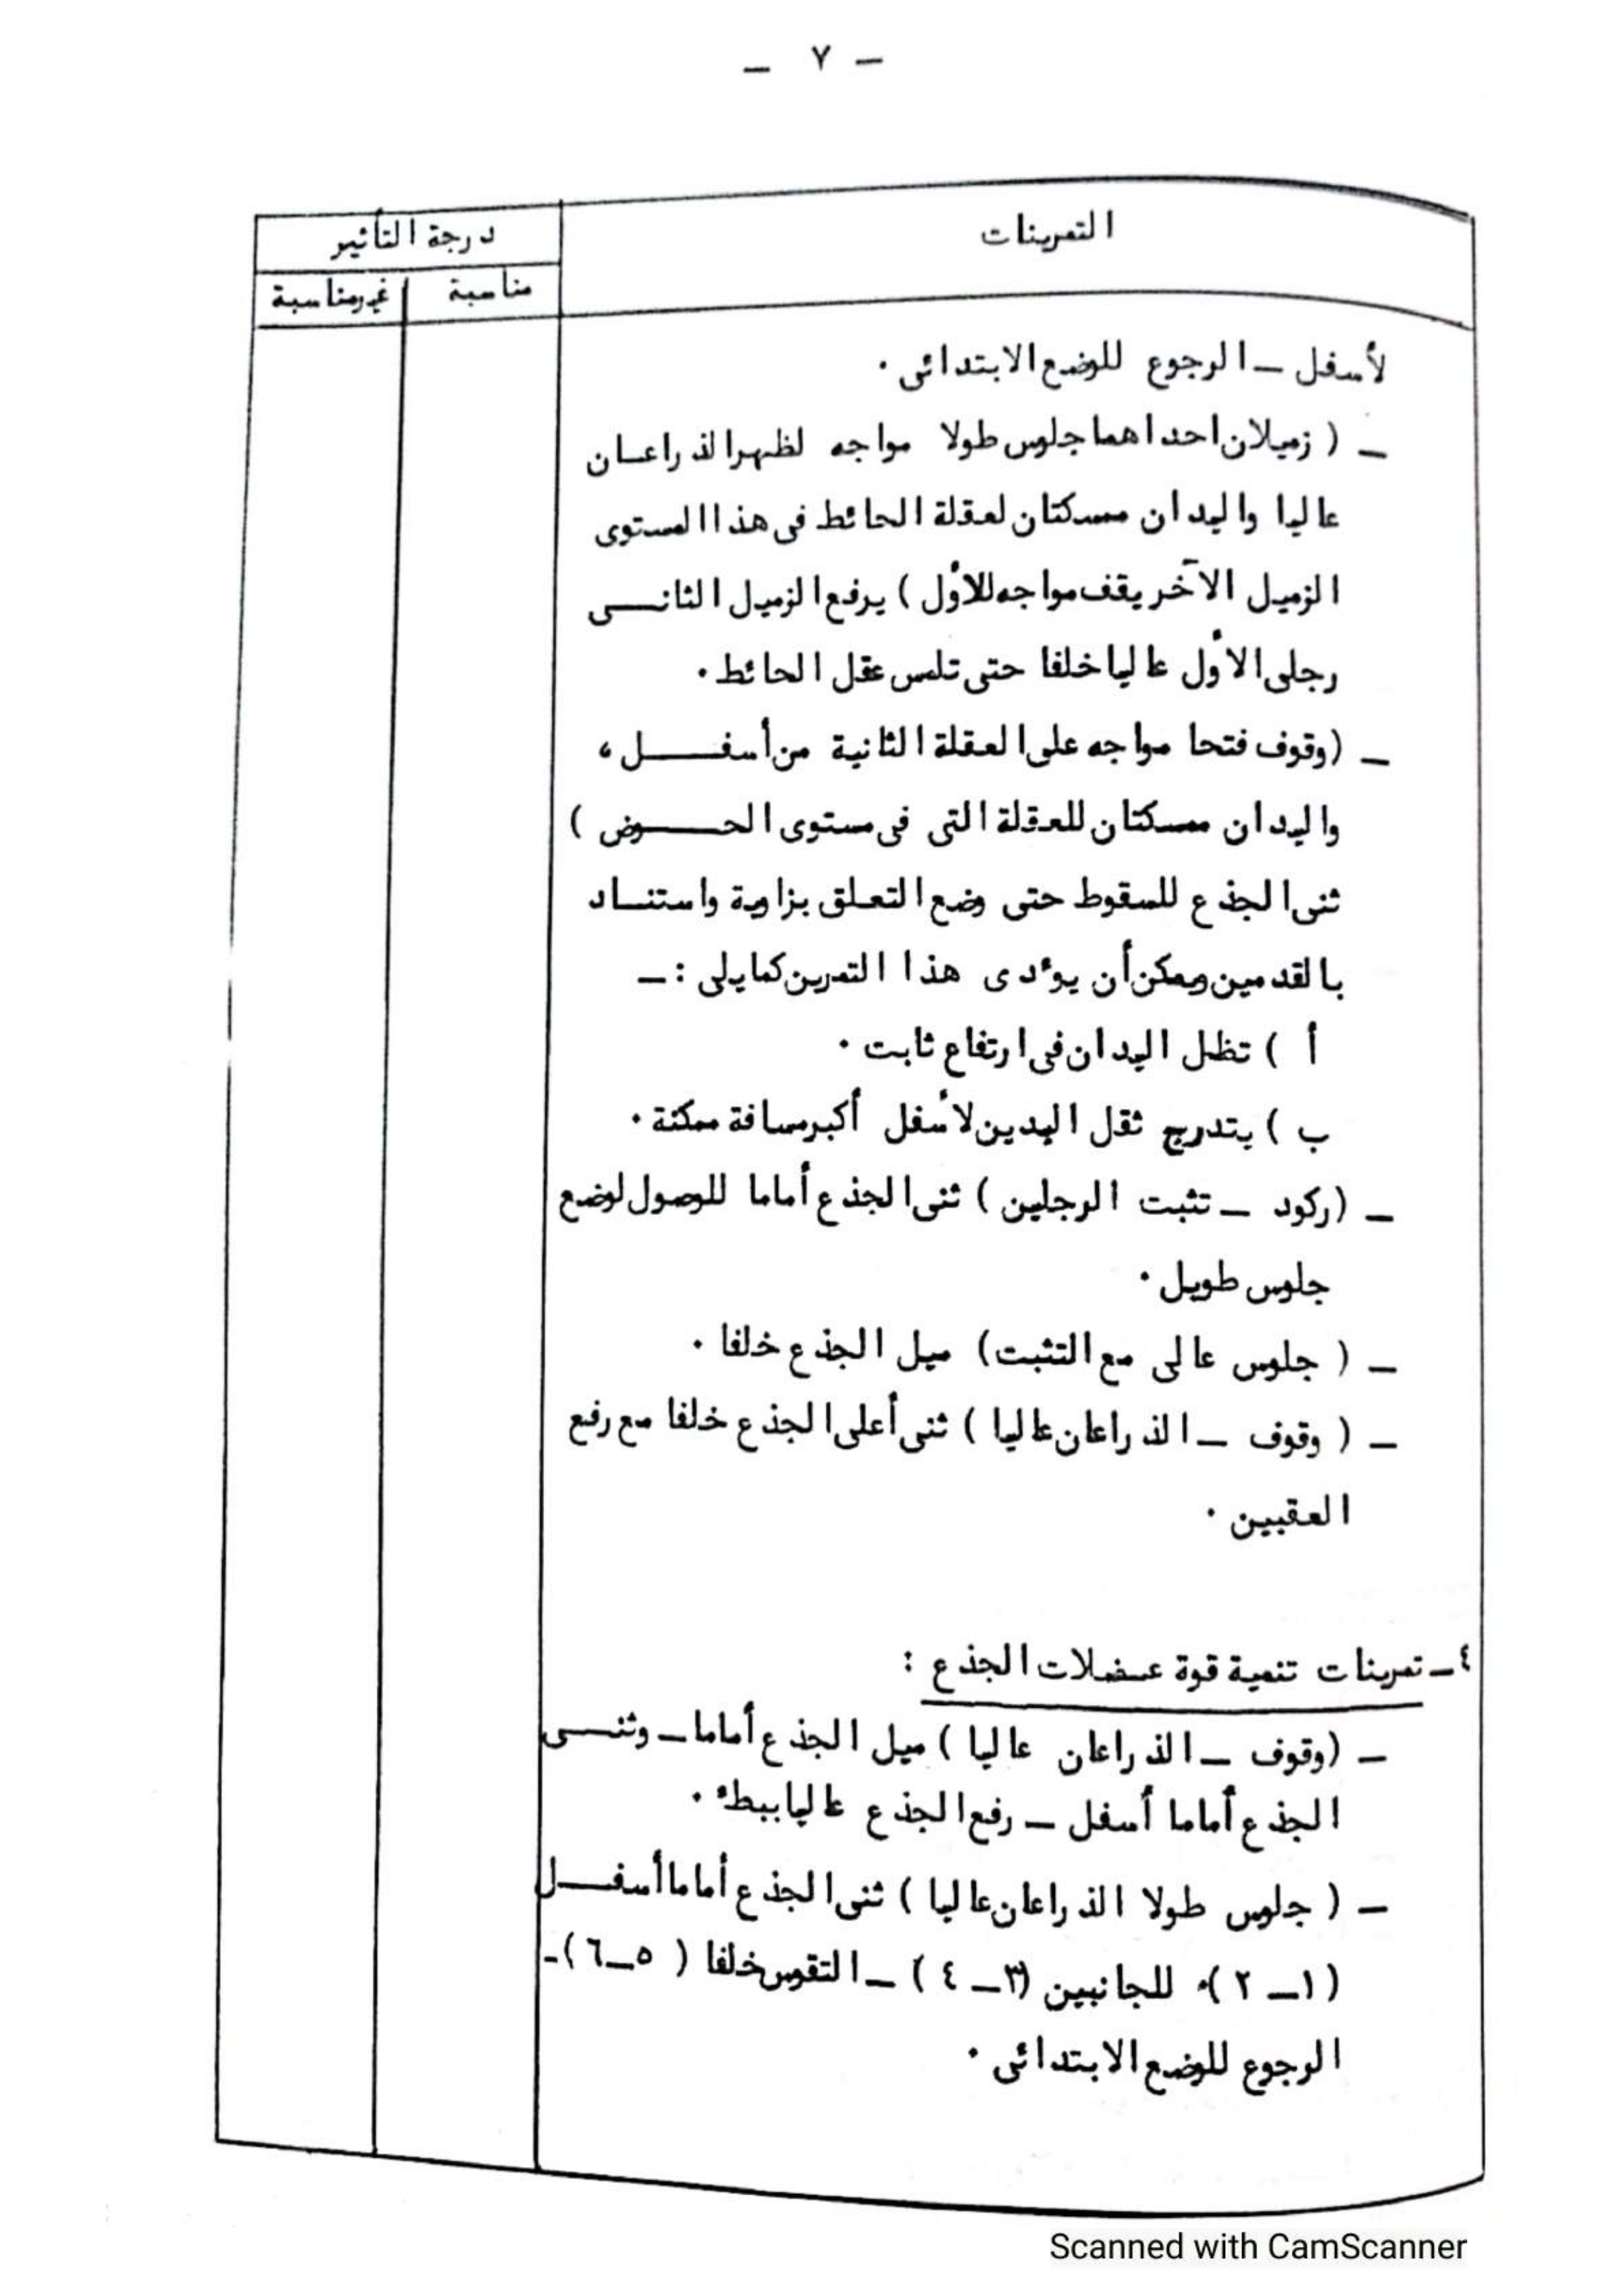 — ٧ —
التمرينات
درجة التأثير
مناسبة
غير مناسبة
لأسفل — الرجوع للوضع الابتدائى ٠
— ( زميلان احداهما جلوس طولا مواجه لظهر الذراعان
عاليا واليدان ممسكتان لعقلة الحائط فى هذا المستوى
الزميل الآخر يقف مواجه للأول ) يرفع الزميل الثانى
رجلى الأول عاليا خلفا حتى تلمس عقل الحائط ٠
— (وقوف فتحا مواجه على العقلة الثانية من أسفل ،
واليدان ممسكتان للعقلة التى فى مستوى الحوض )
ثنى الجذع للسقوط حتى وضع التعلق بزاوية واستناد
بالقدمين ويمكن أن يؤدى هذا التمرين كما يلى : —
أ ) تظل اليدان فى ارتفاع ثابت ٠
ب ) يتدرج ثقل اليدين لأسفل أكبر مسافة ممكنة ٠
— (ركود — تثبت الرجلين ) ثنى الجذع أماما للوصول لوضع
جلوس طويل ٠
— ( جلوس عالى مع التثبت) ميل الجذع خلفا ٠
— ( وقوف — الذراعان عاليا ) ثنى أعلى الجذع خلفا مع رفع
العقبين ٠
٤ — تمرينات تنمية قوة عضلات الجذع :
— (وقوف — الذراعان عاليا ) ميل الجذع أماما — وثنى
الجذع أماما أسفل — رفع الجذع عاليا ببطء ٠
— ( جلوس طولا الذراعان عاليا ) ثنى الجذع أماما أسفل
( ١ — ٢ )٠ للجانبين (٣ — ٤ ) — التقوس خلفا ( ٥ — ٦ ) —
الرجوع للوضع الابتدائى ٠
Scanned with CamScanner